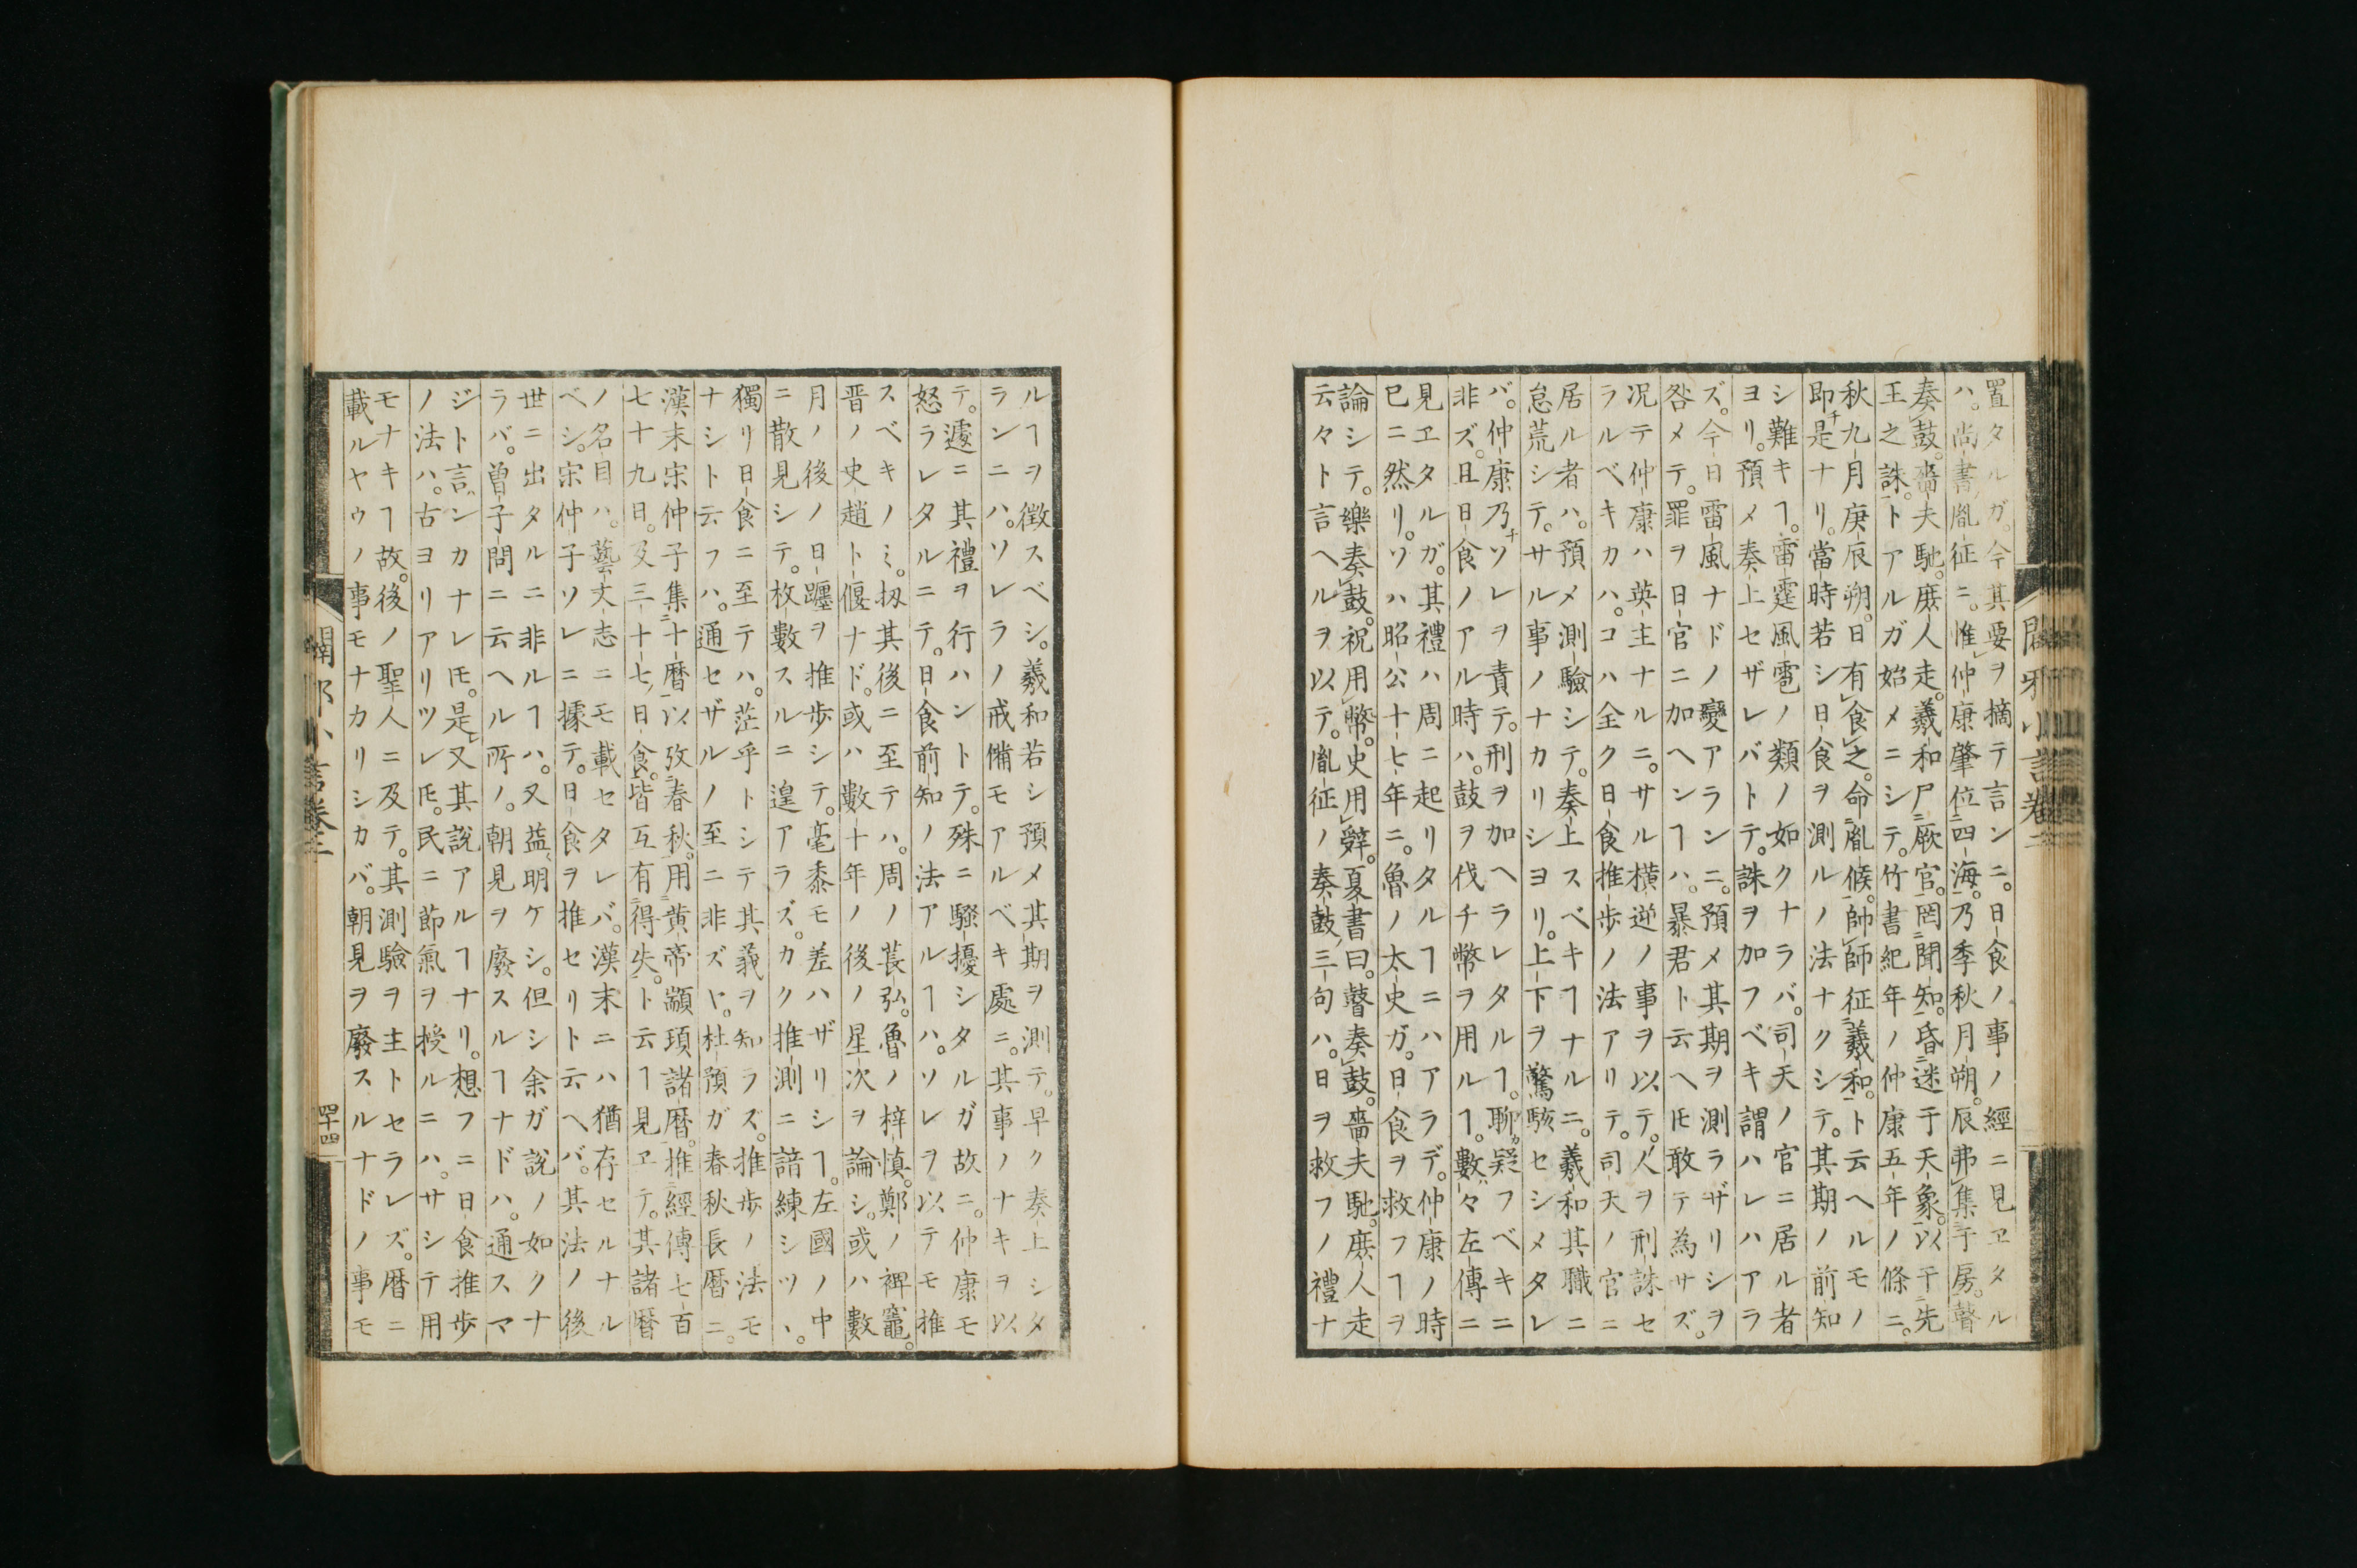 置タルガ。今其要ヲ摘テ言ンニ。日食ノ事ノ經ニ見ヱタル
ハ。尚書胤征ニ。惟仲康肇位四海。乃季秋月朔。辰弗集于房。瞽
奏鼓。嗇夫馳。庶人走。羲和尸厥官。罔聞知。昏迷于天象。以干先
王之誅。トアルガ始メニシテ。竹書紀年ノ仲康五年ノ條ニ。
秋九月庚辰朔。日有食之。命胤候。帥師征羲和。ト云ヘルモノ
即チ是ナリ。當時若シ日食ヲ測ルノ法ナクシテ。其期ノ前知
ヨリ。預メ奏上セザレバトテ。誅ヲ加フベキ謂ハレハアラ
シ難キヿ。雷霆風雹ノ類ノ如クナラバ。司天ノ官ニ居ル者
ズ。今日雷風ナドノ變アランニ。預メ其期ヲ測ラザリシヲ
咎メテ。罪ヲ日官ニ加ヘンヿハ。暴君ト云ヘ𪜈敢テ為サズ。
况テ仲康ハ英主ナルニ。サル横逆ノ事ヲ以テ。人ヲ刑誅セ
ラルベキカハ。コハ全ク日食推歩ノ法アリテ。司天ノ官ニ
居ル者ハ。預メ測驗シテ。奏上スベキヿナルニ。羲和其職ニ
怠荒シテ。サル事ノナカリシヨリ。上下ヲ驚駭セシメタレ
バ。仲康乃チソレヲ責テ。刑ヲ加ヘラレタルヿ。聊カ疑フベキニ
非ズ。且日食ノアル時ハ。鼓ヲ伐チ幣ヲ用ルヿ。數々左傳ニ
見ヱタルガ。其禮ハ周ニ起リタルヿニハアラデ。仲康ノ時
已ニ然リ。ソハ昭公十七年ニ。魯ノ太史ガ。日食ヲ救フヿヲ
論シテ。樂奏鼓。祝用幣。史用辭。夏書曰。瞽奏鼓。嗇夫馳。庶人走
云々ト言ヘルヲ以テ。胤征ノ奏鼓三句ハ。日ヲ救フノ禮ナ
ルヿヲ徴スベシ。羲和若シ預メ其期ヲ測テ。早ク奏上シタ
ランニハ。ソレラノ戒備モアルベキ處ニ。其事ノナキヲ以
テ。遽ニ其禮ヲ行ハントテ。殊ニ騒擾シタルガ故ニ。仲康モ
怒ラレタルニテ。日食前知ノ法アルヿハ。ソレヲ以テモ推
スベキノミ。扨其後ニ至テハ。周ノ萇弘。魯ノ梓慎。鄭ノ裨竈。
晋ノ史趙ト偃ナド。或ハ數十年ノ後ノ星次ヲ論シ。或ハ數
月ノ後ノ日躔ヲ推歩シテ。毫黍モ差ハザリシヿ。左國ノ中
ニ散見シテ。枚數スルニ遑アラズ。カク推測ニ諳練シツヽ。
獨リ日食ニ至テハ。茫乎トシテ其義ヲ知ラズ。推歩ノ法モ
ナシト云フハ。通セザルノ至ニ非ズヤ。杜預ガ春秋長暦ニ。
漢末宋仲子集十暦以攷春秋。用黄帝顓頊諸暦。推經傳七百
七十九日。及三十七日食。皆互有得失。ト云ヿ見ヱテ。其諸暦
ノ名目ハ。藝文志ニモ載セタレバ。漢末ニハ猶存セルナル
ベシ。宋仲子ソレニ據テ。日食ヲ推セリト云ヘバ。其法ノ後
世ニ出タルニ非ルヿハ。又益明ケシ。但シ余ガ說ノ如クナ
ラバ。曽子問ニ云ヘル所ノ。朝見ヲ廢スルヿナドハ。通スマ
ジト言ンカナレ𪜈。是又其說アルヿナリ。想フニ日食推歩
ノ法ハ。古ヨリアリツレ𪜈。民ニ節氣ヲ授ルニハ。サシテ用
モナキヿ故。後ノ聖人ニ及テ。其測驗ヲ主トセラレズ。暦ニ
載ルヤウノ事モナカリシカバ。朝見ヲ廢スルナドノ事モ
四十四